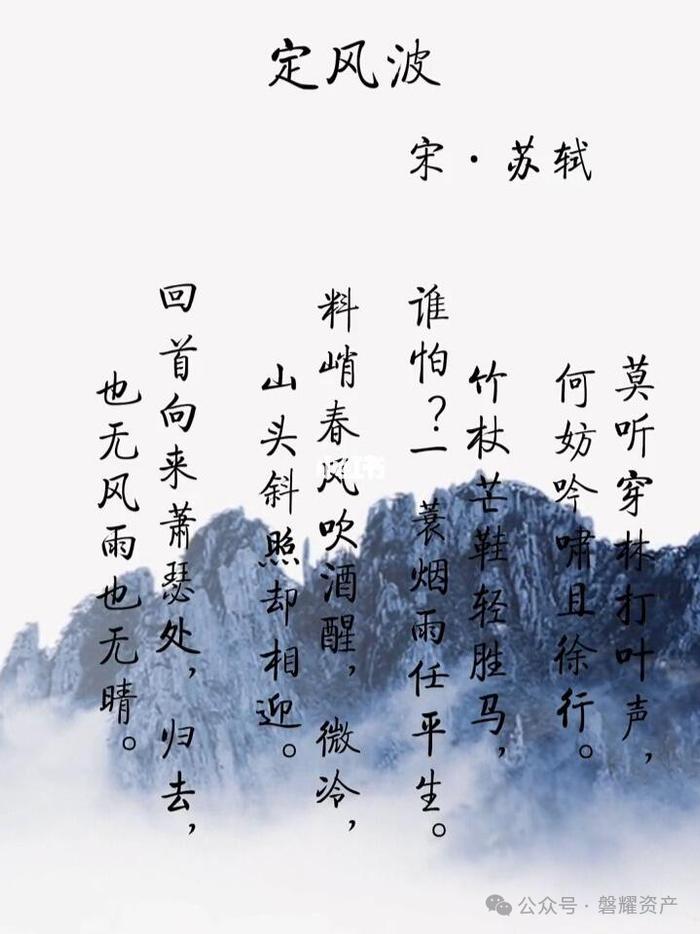 定风波
宋·苏轼
莫听穿林打叶声，
何妨吟啸且徐行。
竹杖芒鞋轻胜马，
谁怕？一蓑烟雨任平生。
料峭春风吹酒醒，微冷，
山头斜照却相迎。
回首向来萧瑟处，归去，
也无风雨也无晴。
小红书
公众号·磐耀资产